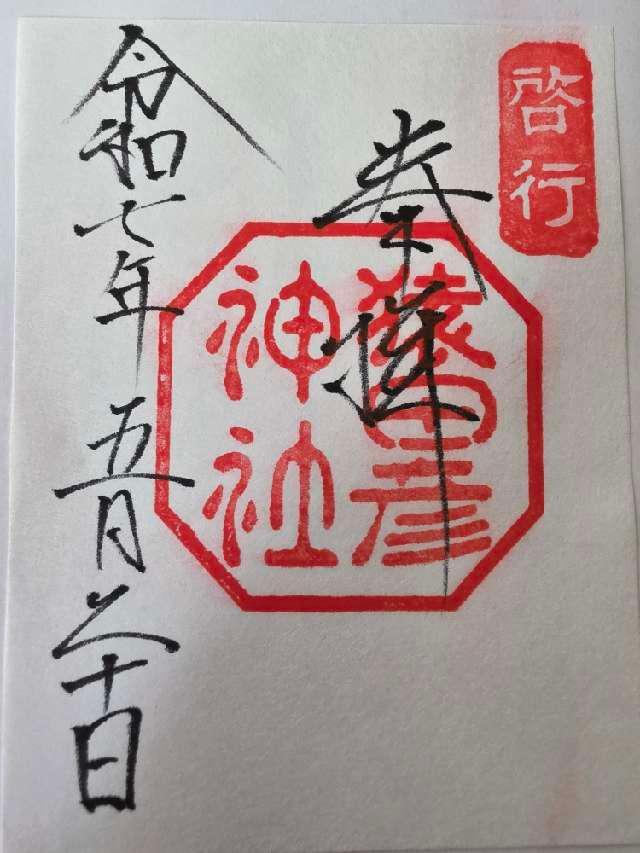 啓行
奉拝
猿田彦
神社
令和七年五月二十日